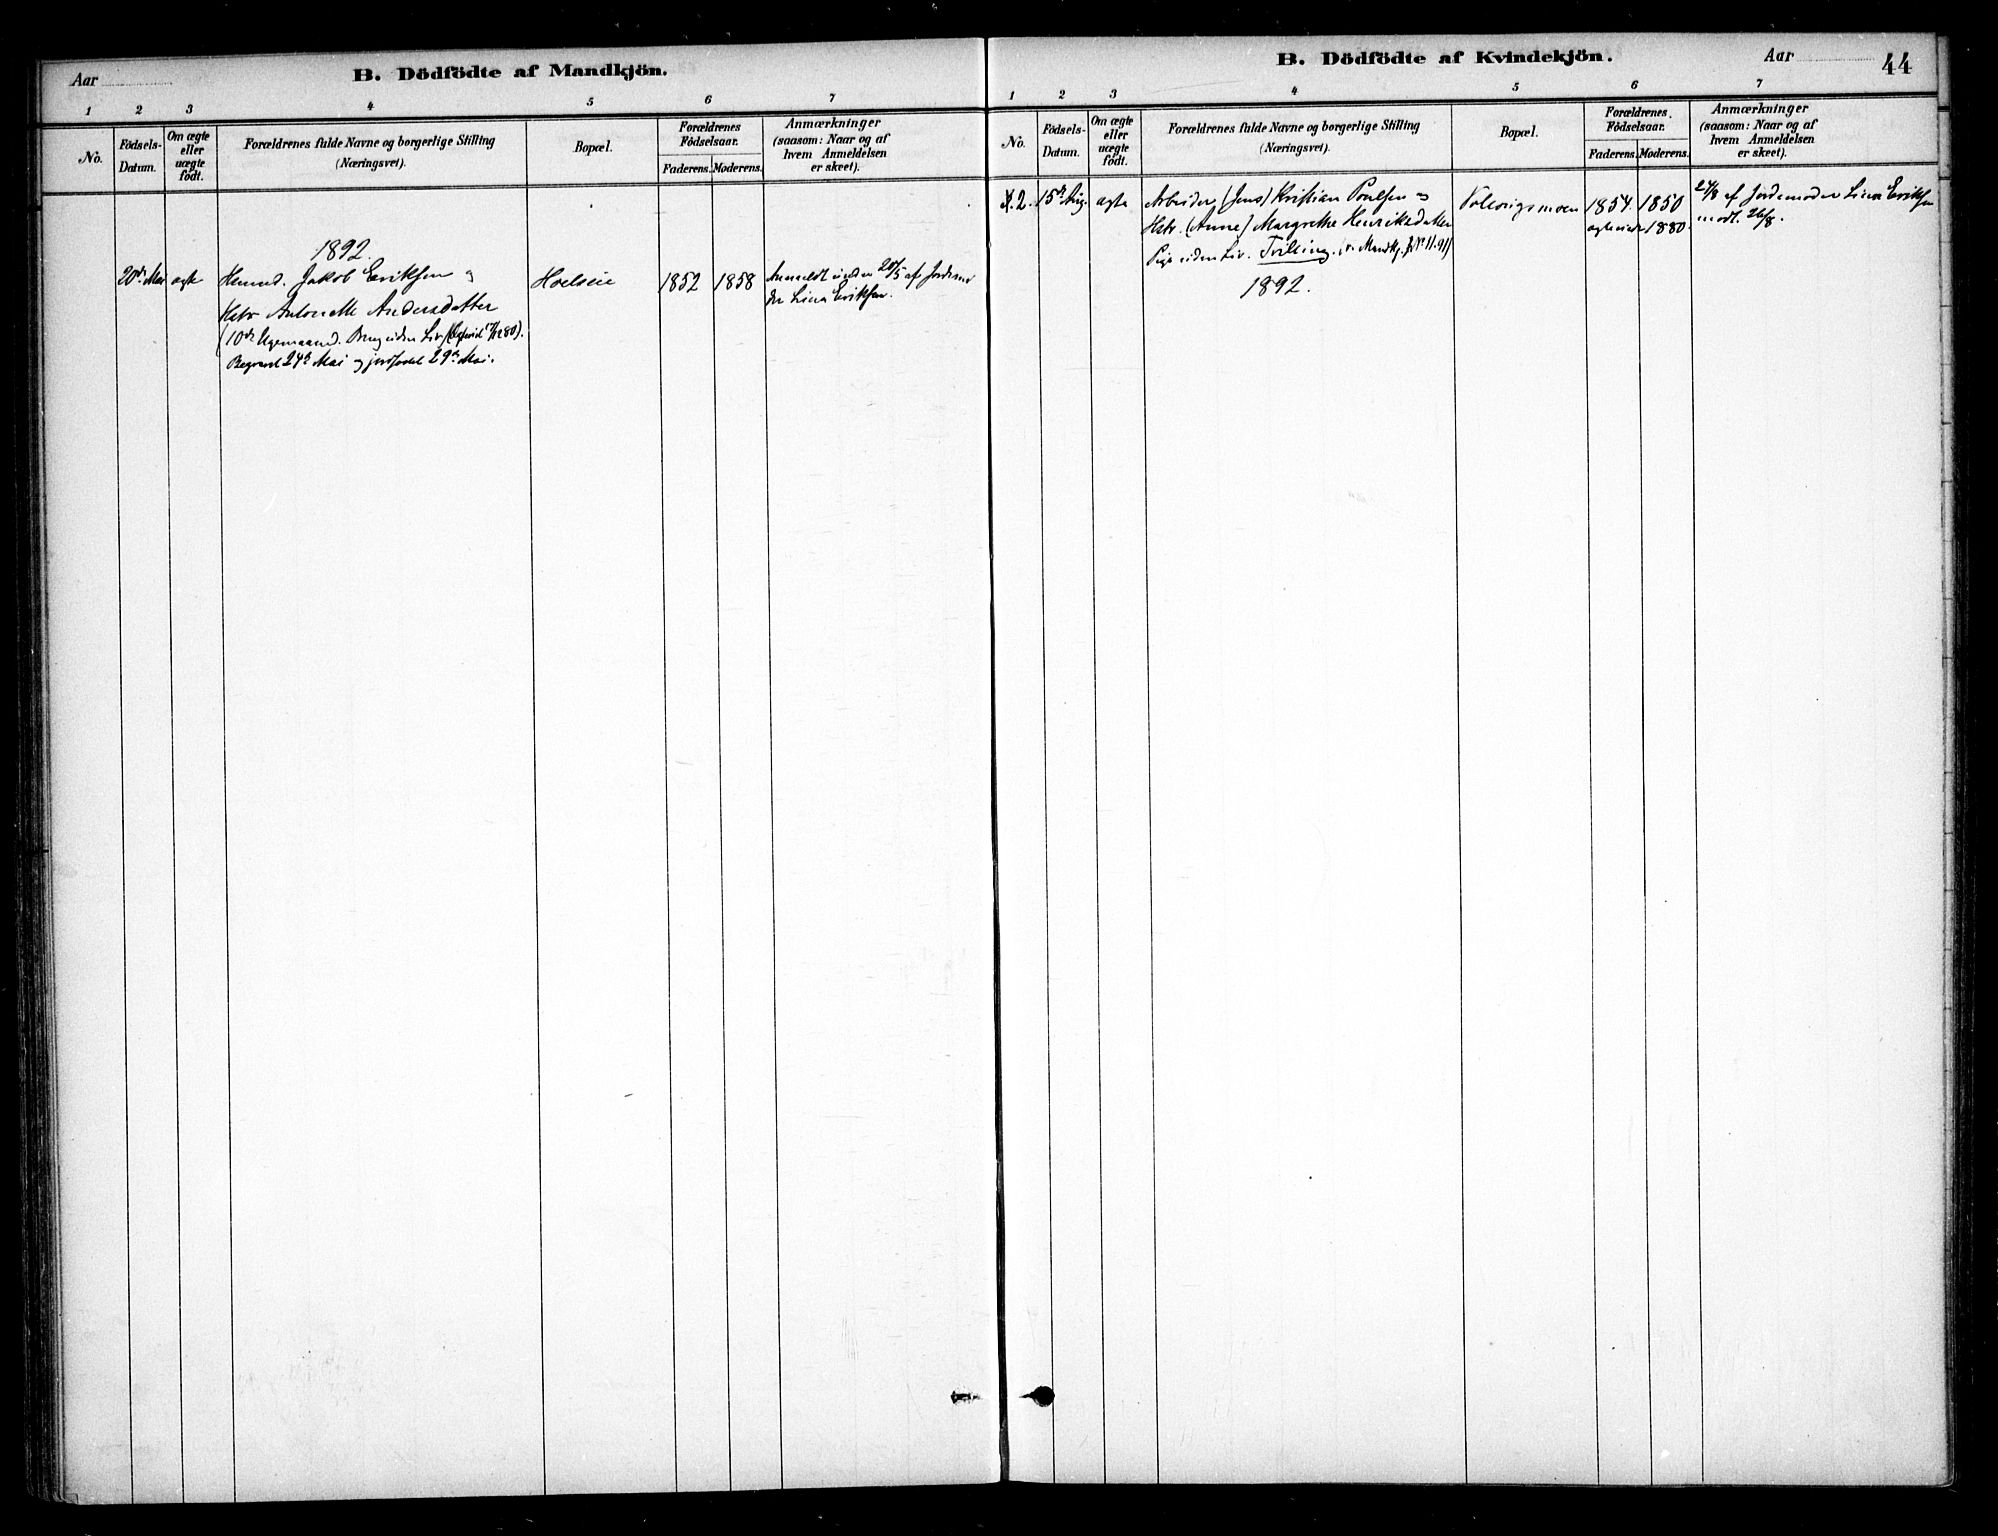 Aar
B. Dödfödte af Mandkjön.
1 2 3 4 5 6 7
No.
Födsels-
Datum.
Om ægte
eller
uægte
födt.
Forældrenes fulde Navne og borgerlige Stilling
(Næringsvei).
Bopæl.
Forældrenes
Födselsaar.
Faderens. Moderens.
Anmærkninger
(saasom: Naar og af
hvem Anmeldelsen
er skeet).
1892.
20de Mai ægte
Jakob Eriksen og
Hstr Antonette Andersdatter
(10de Ugemaand. Dreng uden Liv
Begravet 24de Mai og jordfæstet 29de Mai.
Hoelseie
1852 1858
Anmeldt inden 28/5 af Jordemo
der Lina Eriksen.
B. Dödfödte af Kvindekjön.
Aar
44
1 2 3 4 5 6 7
No.
Födsels-
Datum.
Om ægte
eller
uægte
födt.
Forældrenes fulde Navne og borgerlige Stilling
(Næringsvei).
Bopæl.
Forældrenes
Födselsaar.
Faderens. Moderens.
Anmærkninger
(saasom: Naar og af
hvem Anmeldelsen
er skeet).
2. 15de Aug. ægte
Arbeider (Jens) Kristian Poulsen og
Hstr. (Anne) Margrethe Henriksdatter
Pige uden Liv. Tvilling. (v. Mandkj. No 11. 91)
1892.
1854 1850
1880.
24/8 af Jordemoder Lina Eriksen
modt. 26/8.